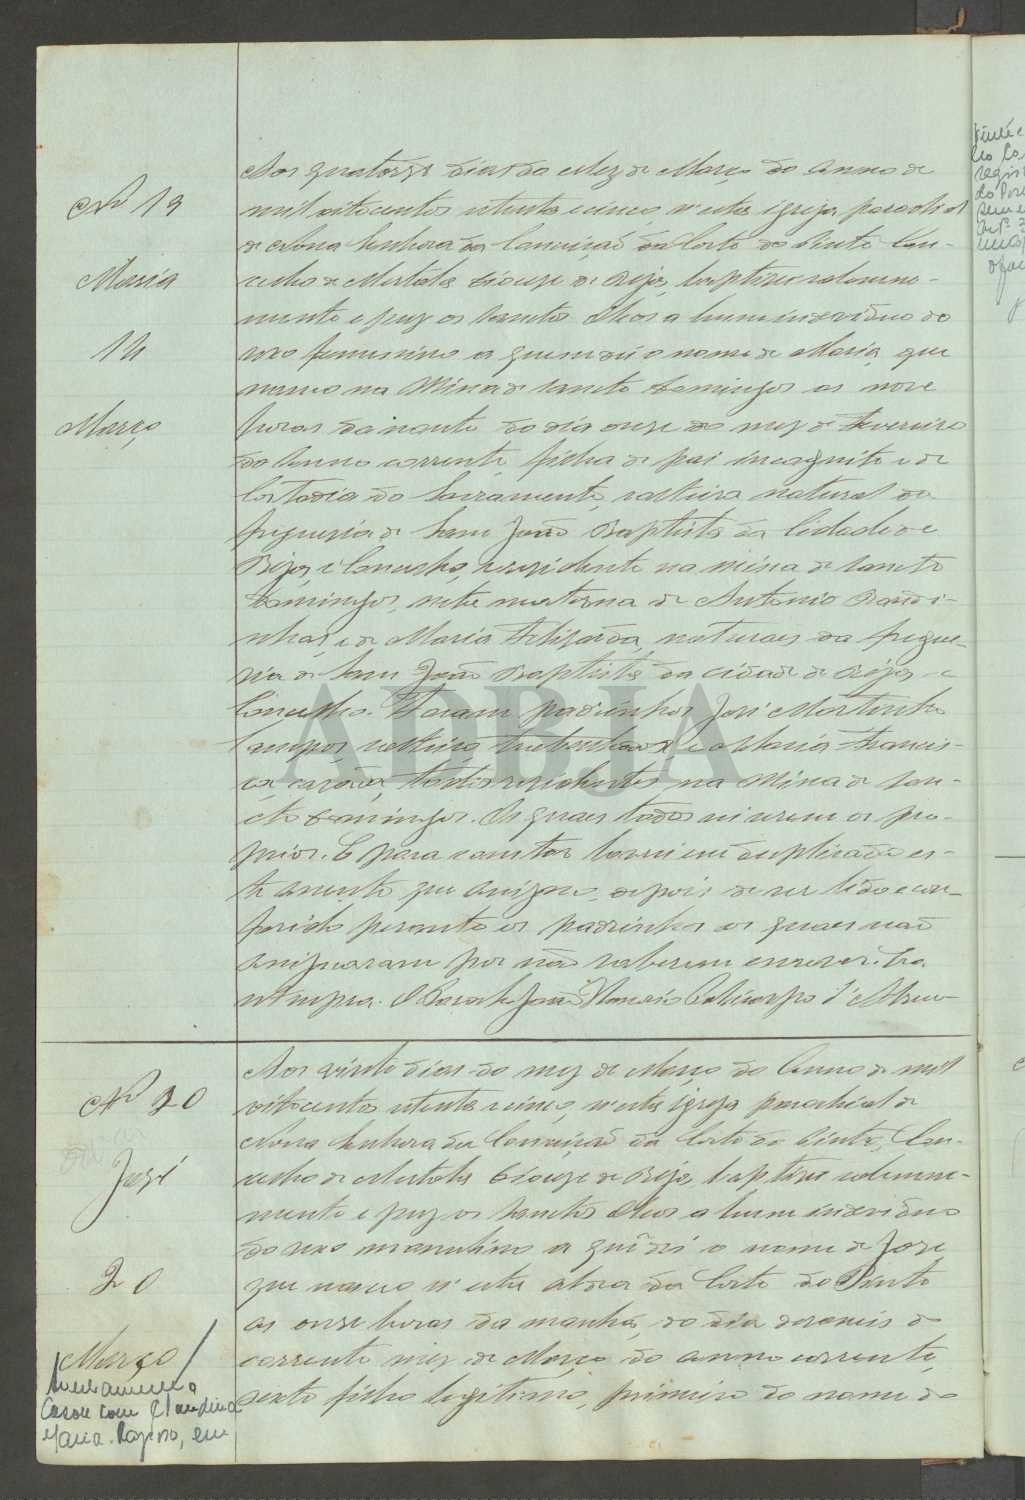 Nº 19
Maria
14
Março
Aos quatorze dias do Mez de Março do Anno de
mil oitocentos oitenta e cinco n'esta igreja parochial
de Nossa Senhora da Conceição da Corte do Pinto Con-
celho de Mertola Diocese de Beja, baptizei solemne-
mente e puz os Sanctos Oleos a hum individuo do
sexo femenino a quem dei o nome de Maria, que
nasceo na Mina de Sancto Domingos as nove
horas da noute do dia onze do mez de Fevereiro
do Anno corrente, filha de pai incognito e de
Costodia do Sacramento, solteira natural da
freguesia de Sam João Baptista da Cidade de
Beja, e Concelho, residente na mina de Sancto
Domingos, neta materna de Antonio
e de Maria Felizarda, naturaes da fregue-
sia de Sam João Baptista da cidade de Beja e
Concelho. Foram padrinhos José Martinho
Campos solteiro trabalhador e Maria Francis-
ca, cazada, todos residentes na Mina de San-
cto Domingos. Os quaes todos sei serem os pro-
prios. E para constar lavrei em duplicado es-
te assento que assigno, depois de ser lido e con-
ferido perante os padrinhos os quaes não
assignaram por não saberem escrever. Era
ut supra. O Parocho João Policarpo d'Abreu
Nº 20
José
20
Março
Aos vinte dias do mez de Março do Anno de mil
oitocentos oitenta e cinco, n'esta igreja parochial de
Nossa Senhora da Conceição da Corte do Pinto, Con-
celho de Mertola Diocese de Beja, baptizei solemne-
mente e puz os Sanctos Oleos a hum individuo
do sexo masculino a quem dei o nome de José
que nasceo n'esta aldea da Corte do Pinto
as onze horas da manhã, do dia dezaseis do
corrente mez de Março do anno corrente,
sexto filho legitimo, primeiro do nome de
Casou com Claudina
Maria em
ADBJA